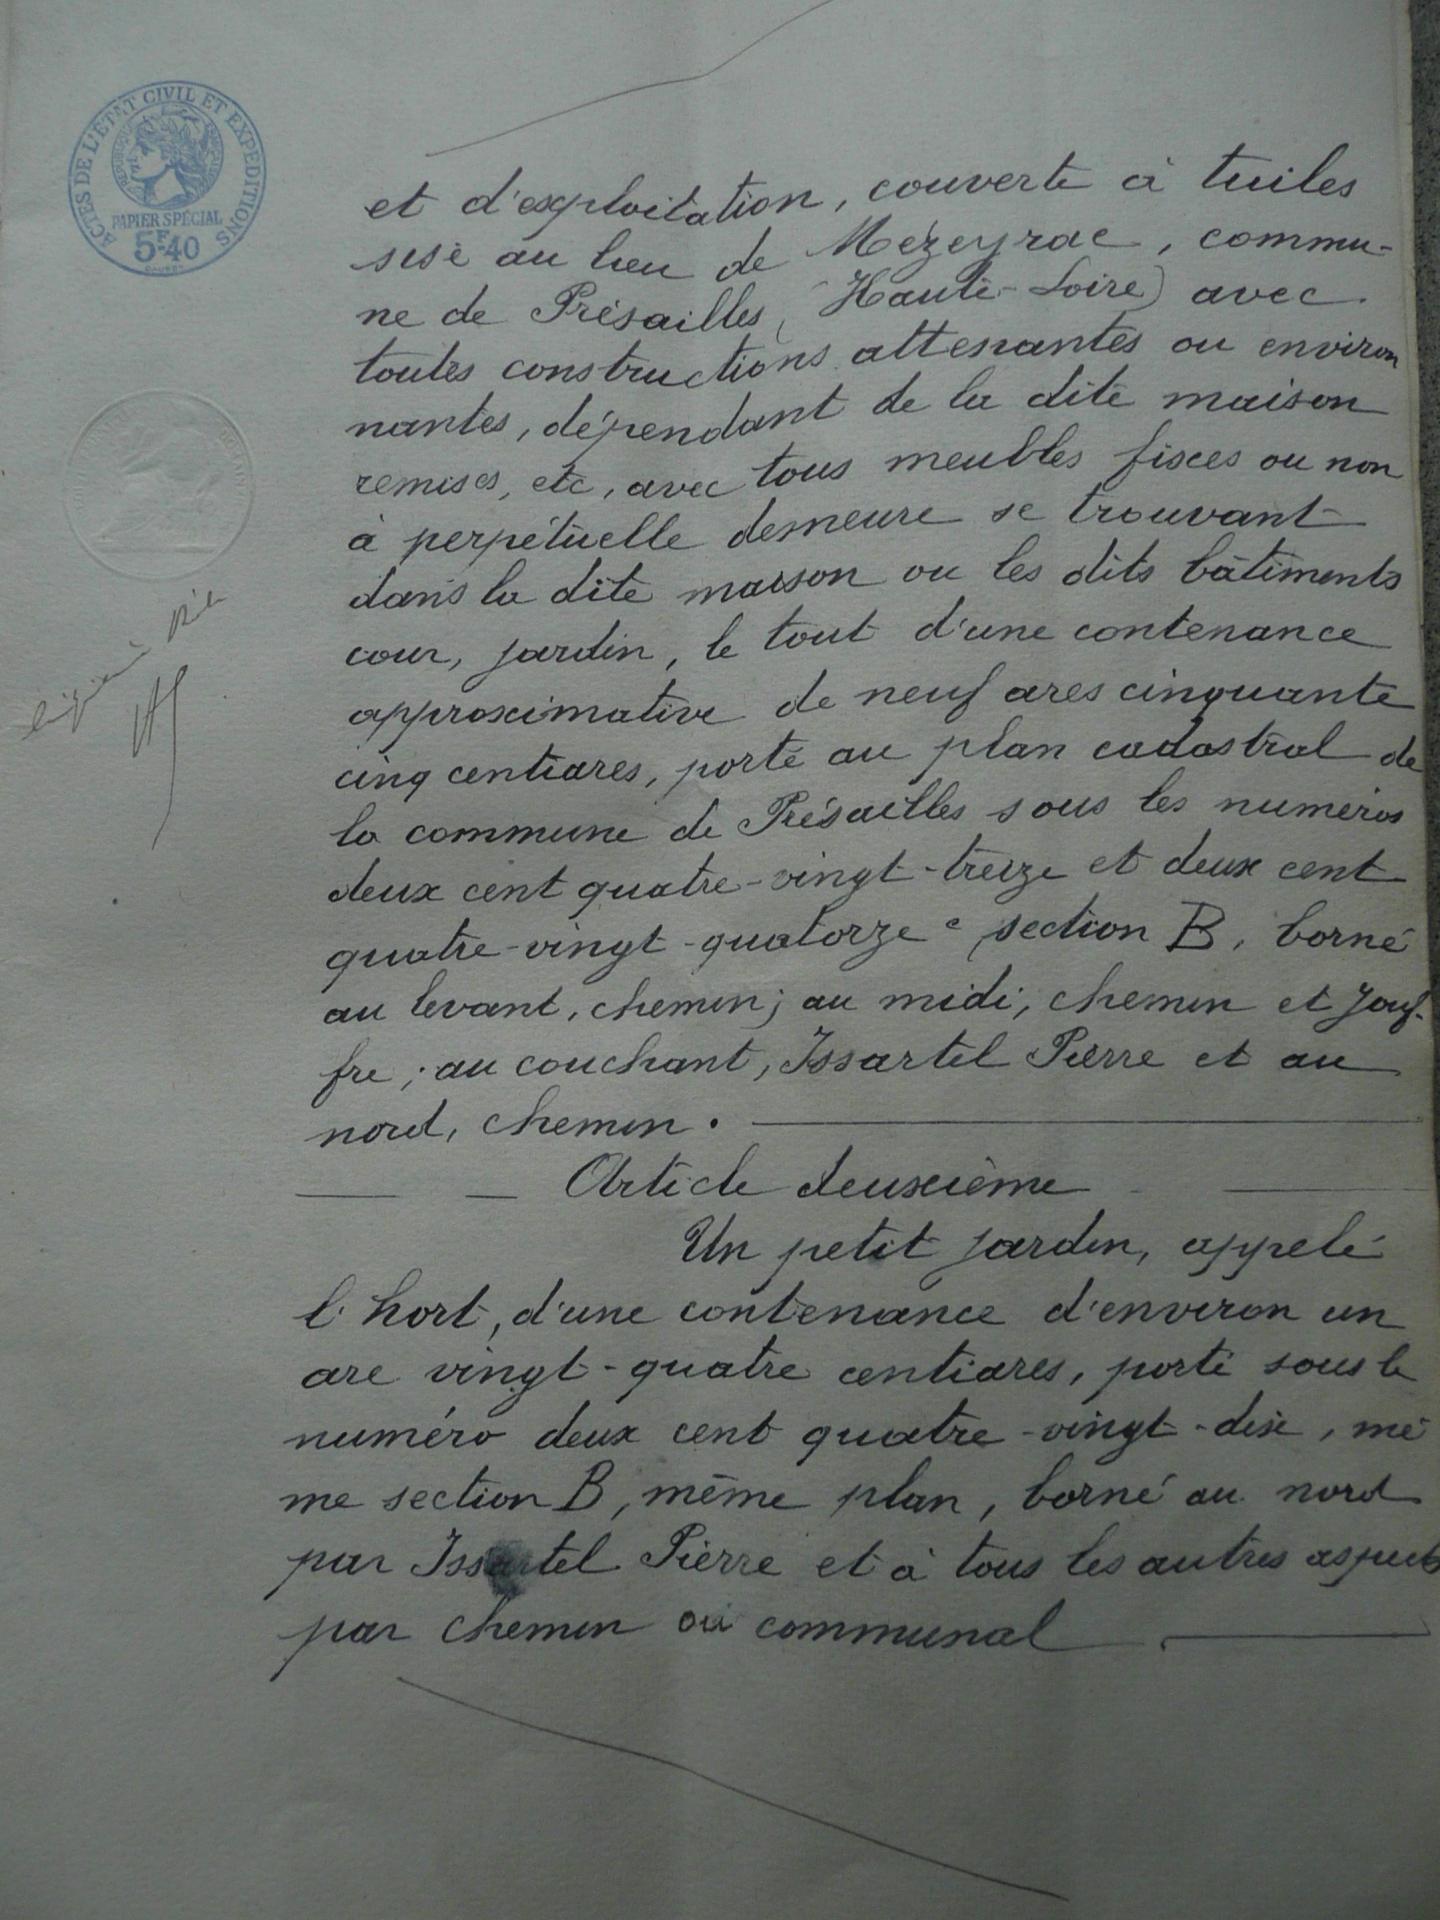 ACTES DE L'ETAT CIVIL ET EXPEDITIONS
REPUBLIQUE FRANÇAISE
PAPIER SPÉCIAL
5F.40
et d'exploitation, couverte à tuiles
sise au lieu de Mézeyrac, commu-
ne de Présailles (Haute-Loire) avec
toutes constructions attenantes ou environ
nantes, dépendant de la dite maison
remises, etc, avec tous meubles fixes ou non
à perpétuelle demeure se trouvant
dans la dite maison ou les dits bâtiments
cour, jardin, le tout d'une contenance
approximative de neuf ares cinquante
cinq centiares, porté au plan cadastral de
la commune de Présailles sous les numéros
deux cent quatre-vingt-treize et deux cent
quatre-vingt-quatorze section B, borné
au levant, chemin; au midi, chemin et Jouf-
fre; au couchant, Issartel Pierre et au
nord, chemin.
Article deuxième
Un petit jardin, appelé
l'hort, d'une contenance d'environ un
are vingt-quatre centiares, porté sous le
numéro deux cent quatre-vingt-dix, mê
me section B, même plan, borné au nord
par Issartel Pierre et à tous les autres aspects
par chemin ou communal